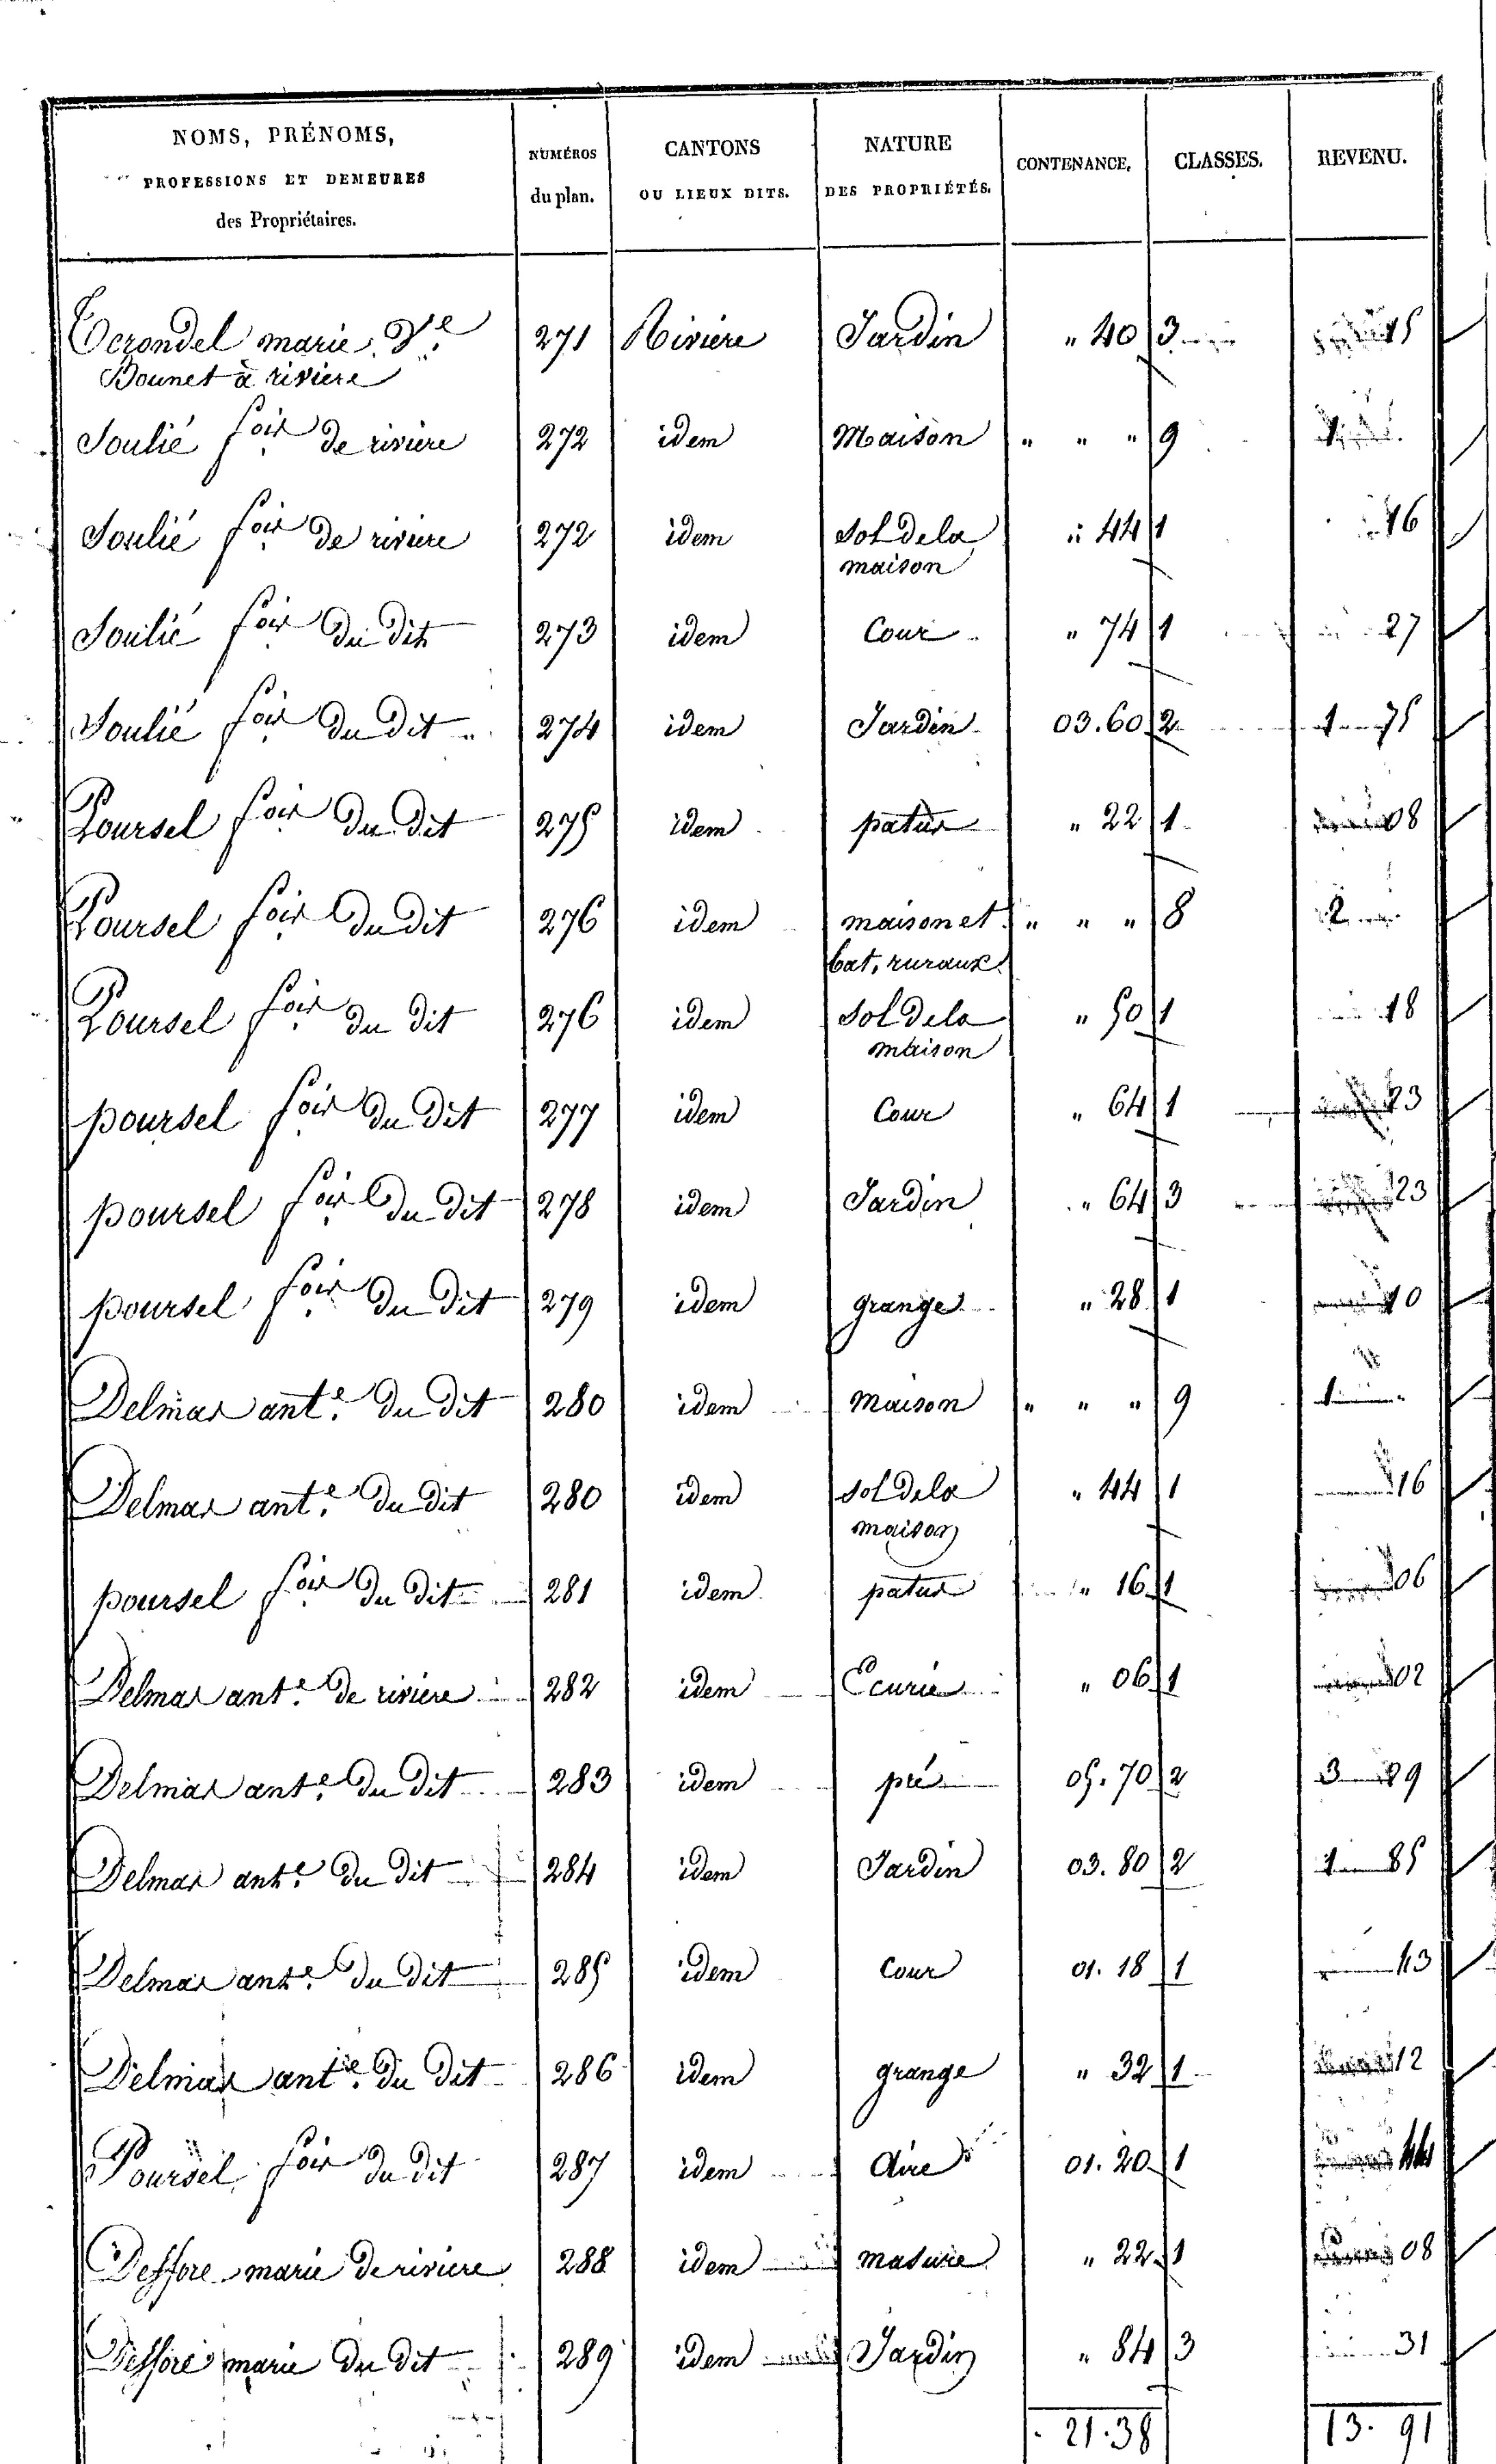 NOMS, PRÉNOMS, PROFESSIONS ET DEMEURES des Propriétaires. | NUMÉROS du plan. | CANTONS OU LIEUX DITS. | NATURE DES PROPRIÉTÉS. | CONTENANCE. | CLASSES. | REVENU.
Terondel marie Ve. 271 Riviere Jardin " 40 3 15
Bounet à riviere
Soulié fois de riviere 272 idem Maison " " " 9 1
Soulié fois de riviere 272 idem Sol de la 44 1 16
maison
Soulié fois du dit 273 idem Cour " 74 1 27
Soulié fois du dit 274 idem Jardin 03.60 2 1 75
Poursel fois du dit 275 idem patus " 22 1 08
Poursel fois du dit 276 idem maison et " " " 8 2
bat. ruraux
Poursel fois du dit 276 idem Sol de la " 50 1 18
maison
poursel fois du dit 277 idem Cour " 64 1 23
poursel fois du dit 278 idem Jardin " 64 3 23
poursel fois du dit 279 idem grange " 28 1 10
Delmas ante. du dit 280 idem maison " " " 9 1
Delmas ante. du dit 280 idem sol de la " 44 1 16
maison
poursel fois du dit 281 idem patus " 16 1 06
Delmas ante. de riviere 282 idem Ecurie " 06 1 02
Delmas ante. du dit 283 idem pré 05.70 2 3 89
Delmas ante. du dit 284 idem Jardin 03.80 2 1 85
Delmas ante. du dit 285 idem Cour 01.18 1 43
Delmas ante. du dit 286 idem grange " 32 1 12
Poursel fois du dit 287 idem Aire 01.20 1 44
Deffore marie de riviere 288 idem masure " 22 1 08
Deffore marie du dit 289 idem Jardin " 84 3 31
21.38 13. 91